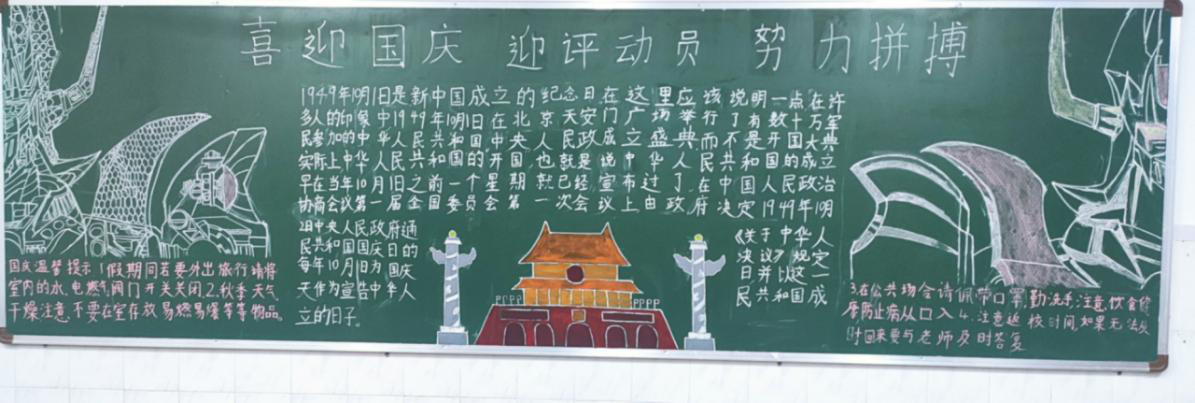 喜迎国庆 迎评动员 努力拼搏
1949年10月1日是新中国成立的纪念日在这里应该说明一点在许
多人的印象中1949年10月1日在北京天安门广场举行了有数十万军
民参加的中华人民共和国中央人民政成立盛典而不是开国大典
实际上中华人民共和国的开国,也就是说中华人民共和国的成立
早在当年10月1日之前一个星期就已经宣布过了.在中国人民政治
协商会议第一届全国委员会第一次会议上由政府决定1949年10月
中央人民政府通
民共和国国庆日的
每年10月1日为国庆
天作为宣告中华人
立的日子。
《关于中华人
决议》规定
日并以这一
民共和国成
国庆温警提示1假期间若要外出旅行请将
室内的水.电燃气阀门开关关闭2.秋季天气
干燥注意,不要在室存放易燃易爆等等物品。
3.在公共场合请佩带口罩,勤洗手,注意饮食
摩防止病从口入4.注意返校时间,如果无法及
时回来要与老师及时答复